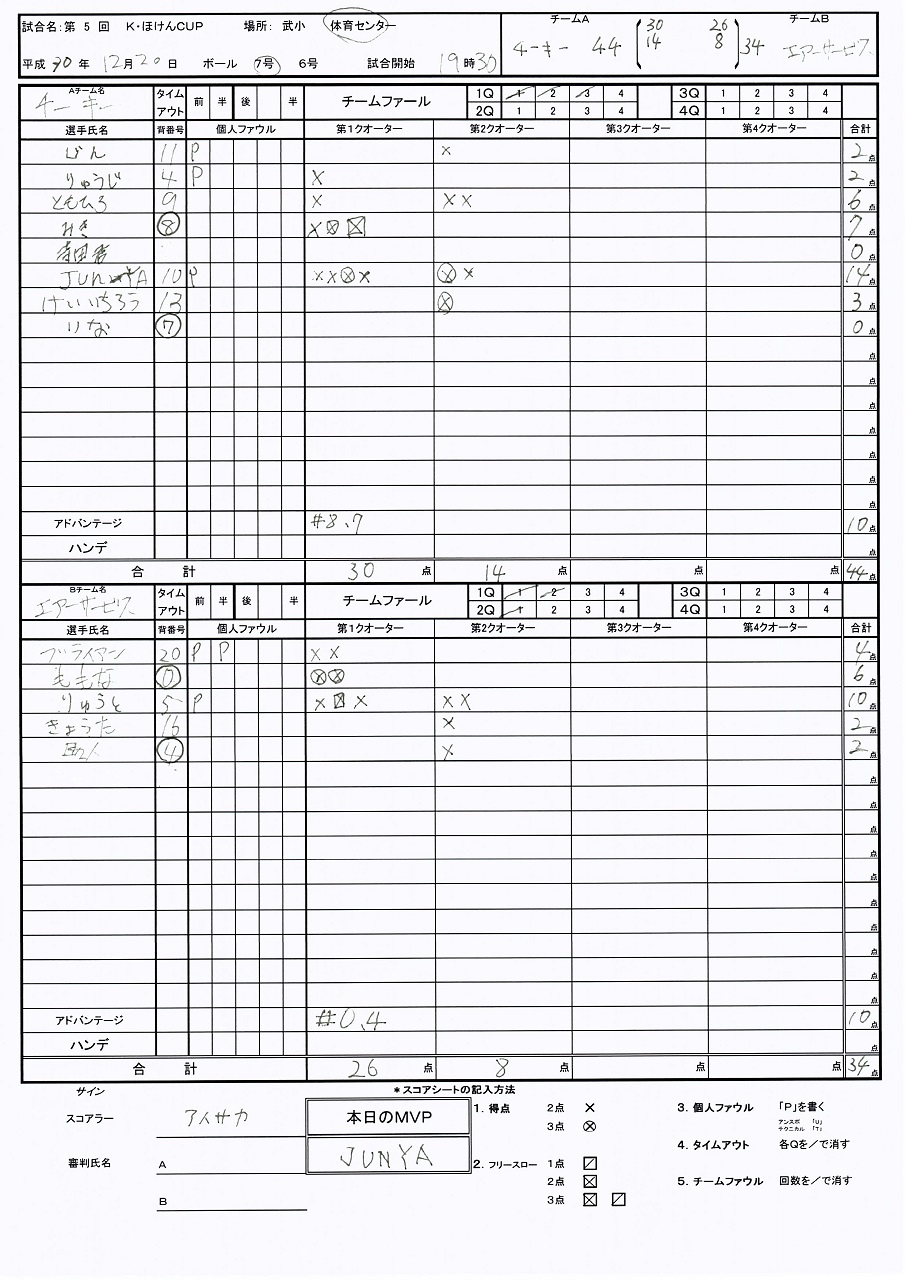 試合名：第 5 回 K・ほけんCUP 場所： 武小 体育センター
チームA チームB
チーキー 44 30 26 34 エアーサービス
14 8
平成 30 年 12月20日 ボール 7号 6号 試合開始 19時30
Aチーム名 チーキー タイムアウト 前 半 後 半 チームファール 1Q 1 2 3 4 3Q 1 2 3 4
2Q 1 2 3 4 4Q 1 2 3 4
選手氏名 背番号 個人ファウル 第1クオーター 第2クオーター 第3クオーター 第4クオーター 合計
じん 11 P × 2点
りゅうじ 4 P × 2点
ともひろ 9 × ×× 6点
みき 8 × 7点
0点
JUNYA 10 P ××⊗× ⊗× 14点
けいいちろう 13 ⊗ 3点
りな 7 0点
点
点
点
点
点
点
点
アドバンテージ #8、7 10点
ハンデ 点
合 計 30 点 14 点 点 点 44点
Bチーム名 エアーサービス タイムアウト 前 半 後 半 チームファール 1Q 1 2 3 4 3Q 1 2 3 4
2Q 1 2 3 4 4Q 1 2 3 4
選手氏名 背番号 個人ファウル 第1クオーター 第2クオーター 第3クオーター 第4クオーター 合計
ブライアン 20 P P ×× 4点
ももな 0 ⊗⊗ 6点
りゅうと 5 P ×☒× ×× 10点
きょうた 16 × 2点
4 × 2点
点
点
点
点
点
点
点
点
点
点
アドバンテージ #0、4 10点
ハンデ 点
合 計 26 点 8 点 点 点 34点
サイン
＊スコアシートの記入方法
スコアラー アイサカ
本日のMVP
JUNYA
審判氏名 A
B
1. 得点 2点 ×
3点 ⊗
2. フリースロー 1点 ⍁
2点 ☒
3点 ☒ ⍁
3. 個人ファウル 「P」を書く
アンスポ 「U」
テクニカル 「T」
4. タイムアウト 各Qを／で消す
5. チームファウル 回数を／で消す